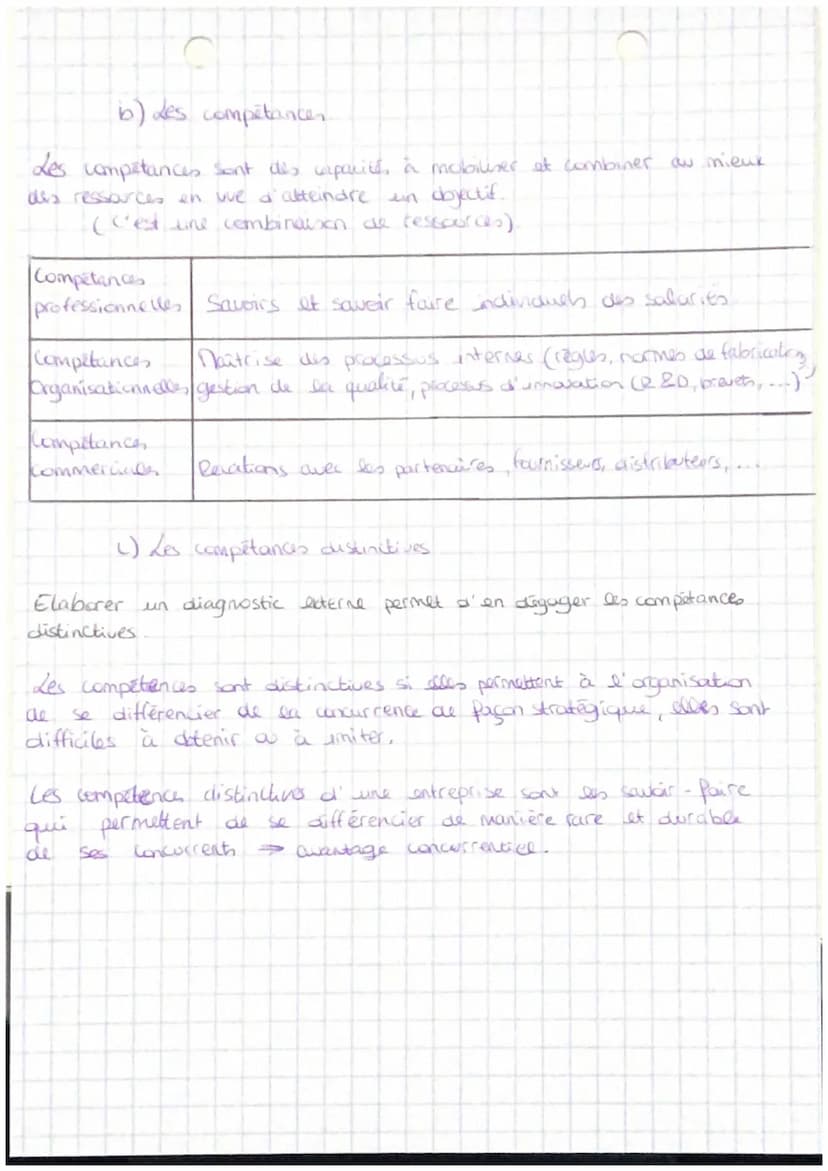 b) Les compétences
Les compétances sont des capacités à mobiliser et combiner au mieux
des ressources en vue d'atteindre un objectif.
(C'est une combinaison de ressources)
Compétances
professionnelles
Savoirs et savoir faire individuels des salariés
Compétances
Organisationnelles
Maîtrise des processus internes (règles, normes de fabrication,
gestion de la qualité, processus d'innovation (R&D, brevets, ...)
Compétances
commerciales
Relations avec les partenaires, fournisseurs, distributeurs, ...
c) Les compétances distinctives
Elaborer un diagnostic externe permet d'en dégager les compétances
distinctives.
Les compétences sont distinctives si elles permettent à l'organisation
de se différencier de la concurrence de façon stratégique, elles sont
difficiles à détenir ou à imiter.
Les compétences distinctives d'une entreprise sont les savoir-faire
qui permettent de se différencier de manière rare et durable
de ses concurrents ⇒ avantage concurrentiel.